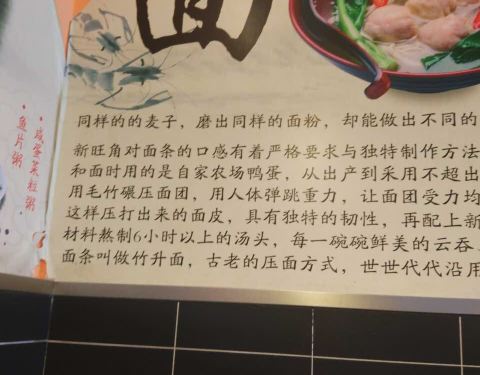 面
同样的的麦子，磨出同样的面粉，却能做出不同的
新旺角对面条的口感有着严格要求与独特制作方法
和面时用的是自家农场鸭蛋，从出产到采用不超出
用毛竹碾压面团，用人体弹跳重力，让面团受力均
这样压打出来的面皮，具有独特的韧性，再配上新
材料熬制6小时以上的汤头，每一碗碗鲜美的云吞
面条叫做竹升面，古老的压面方式，世世代代沿用
·咸蛋菜粒粥
·鱼片粥